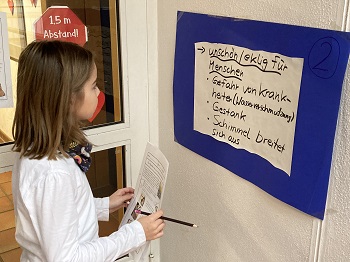 1,5 m
Abstand!
2
→ unschön/eklig für
Menschen
• Gefahr von Krank-
heiten (Wasserverschmutzung)
• Gestank
• Schimmel breitet
sich aus